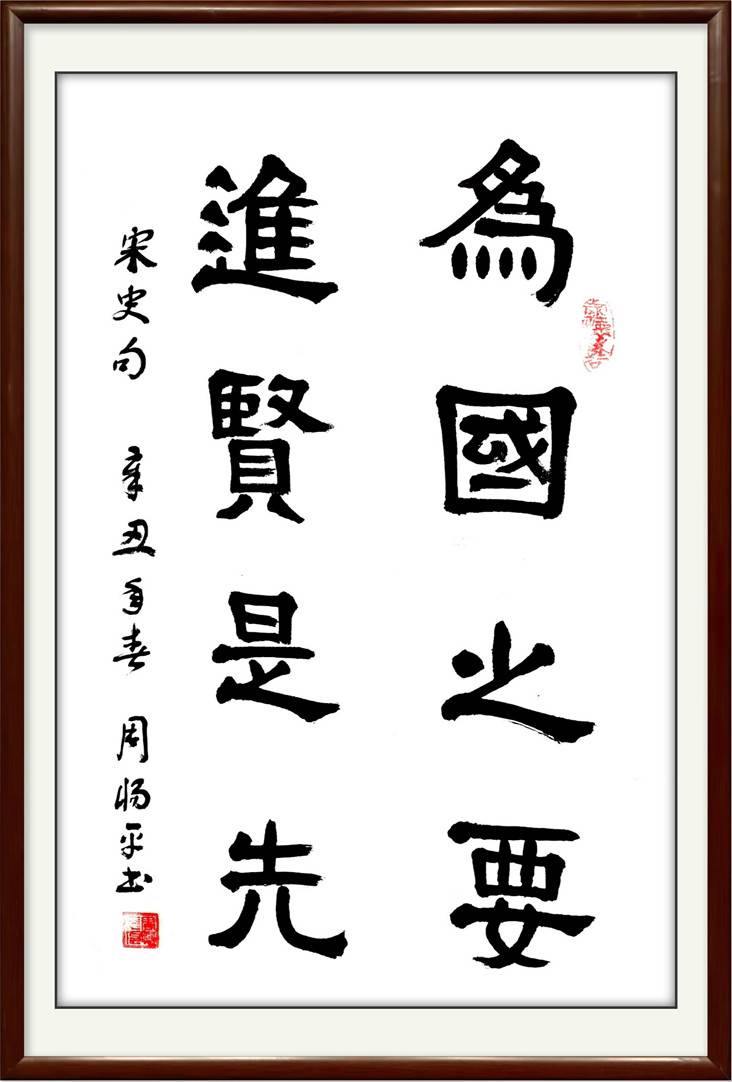 為國之要
進賢是先
宋史句 辛丑年春 周旸平书